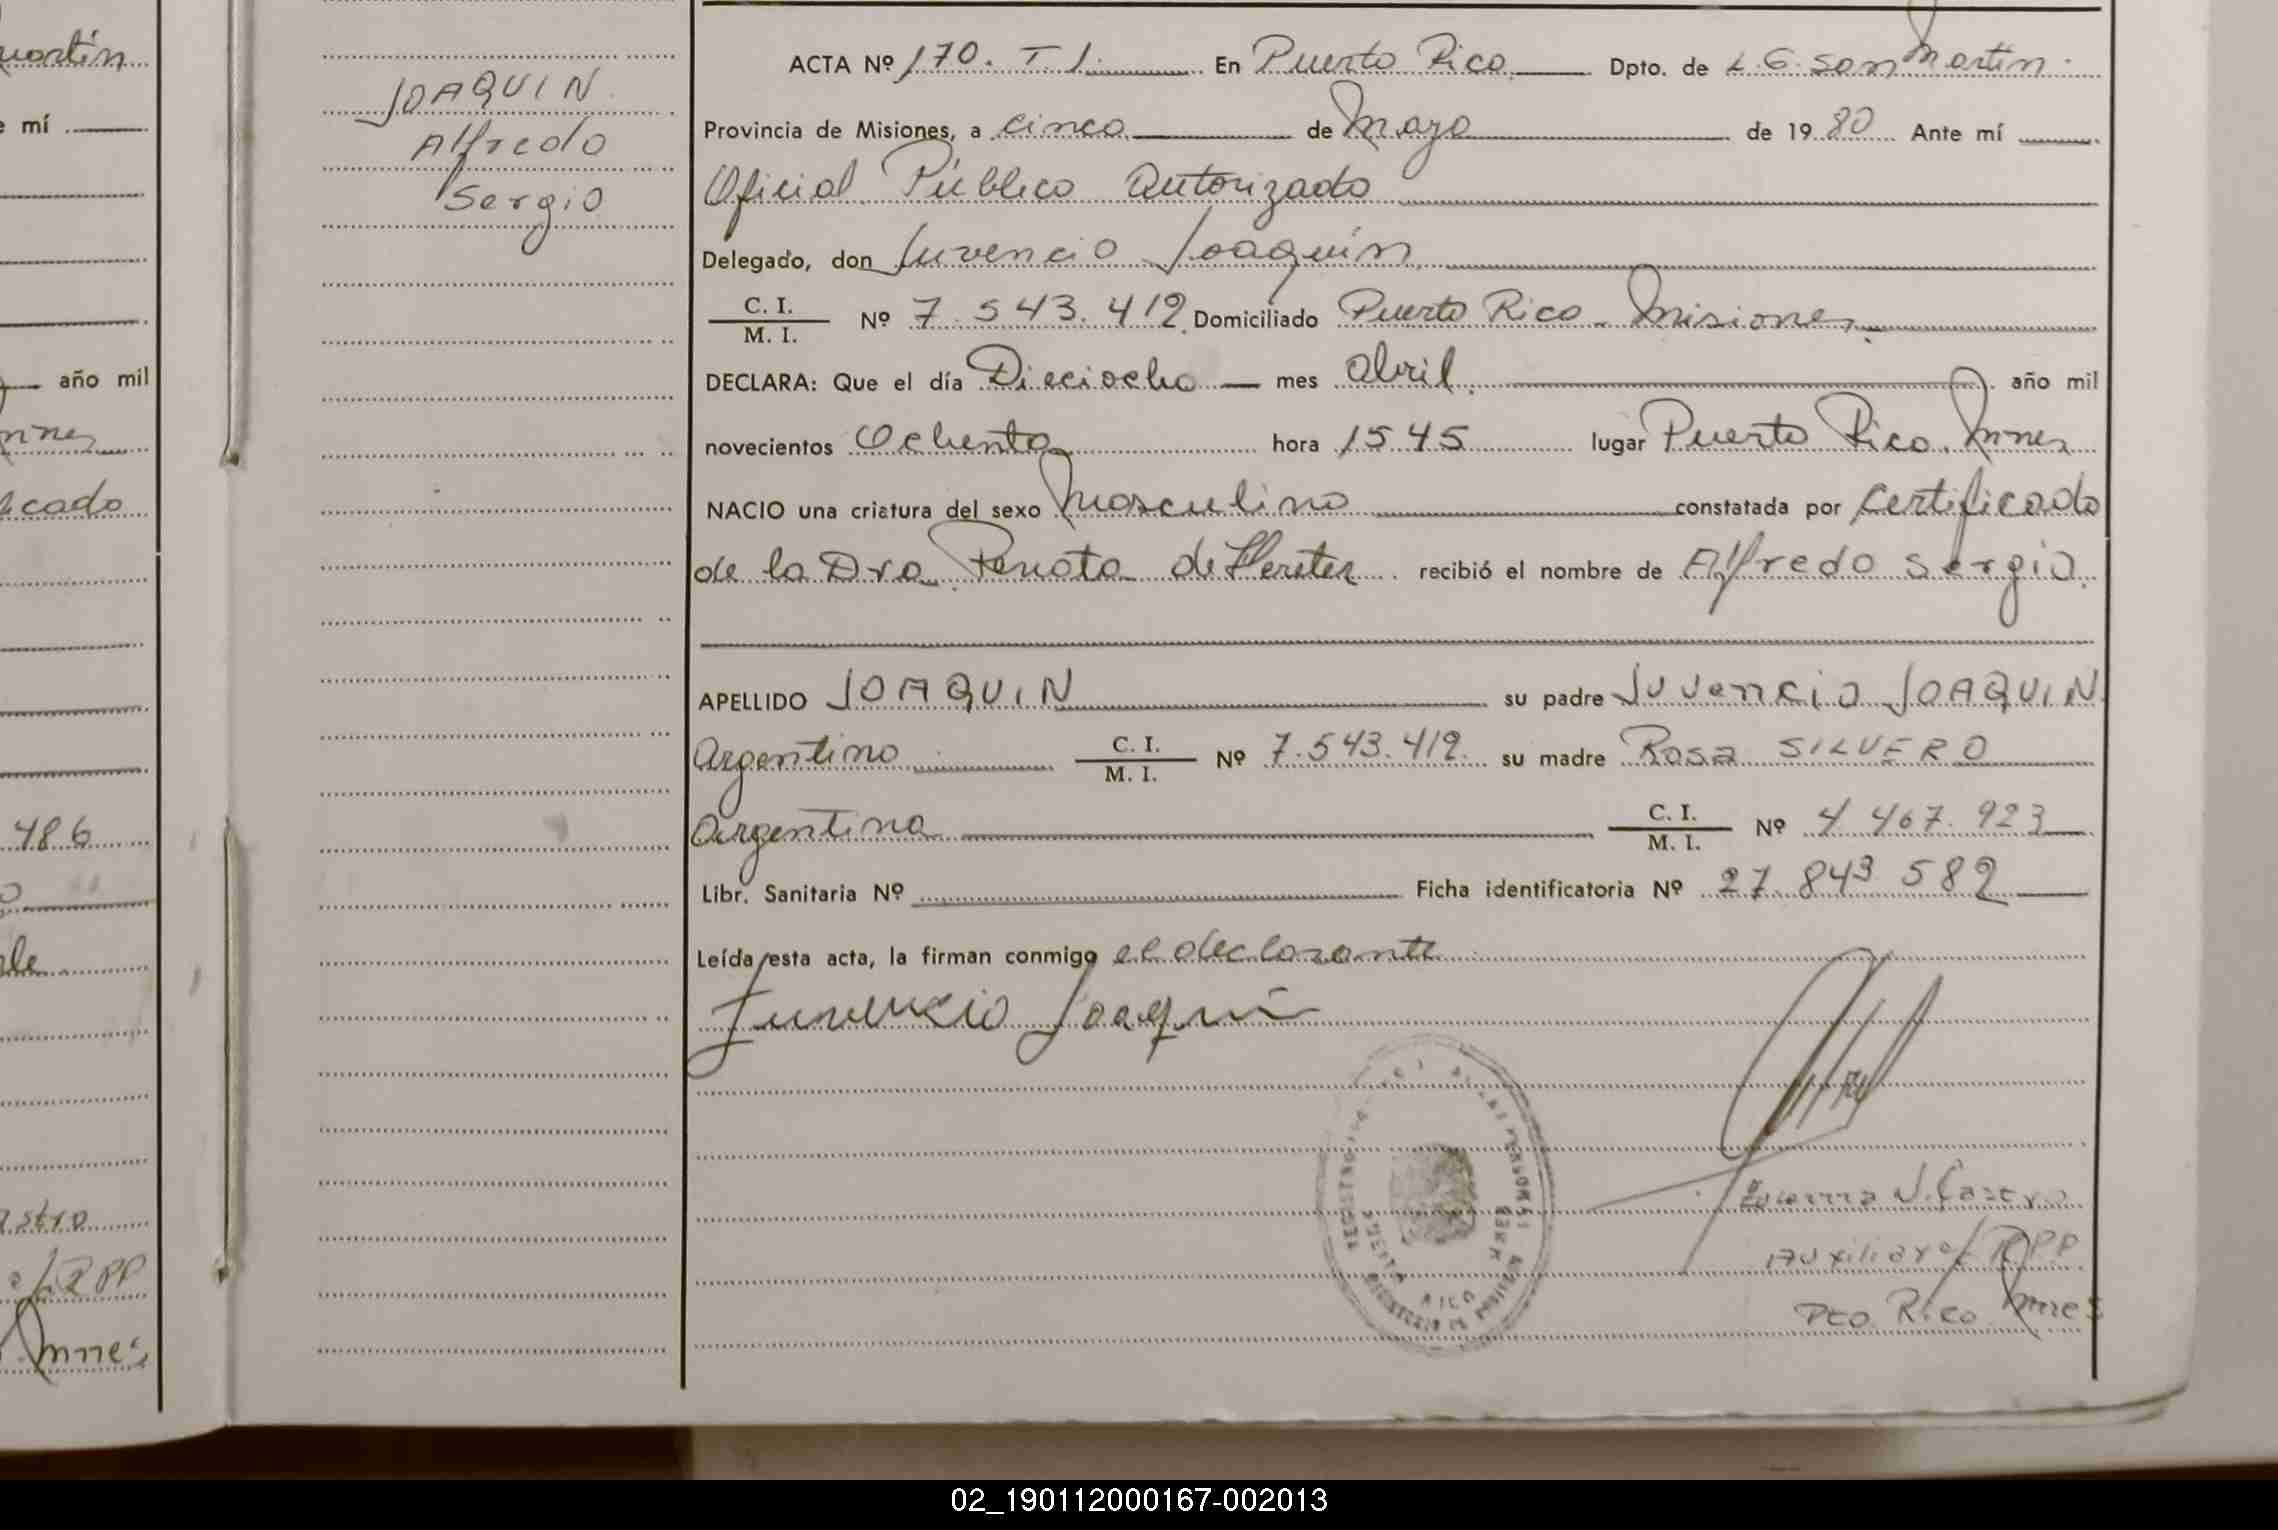 martín
e mí
año mil
nnes
icado
486
astro
a/c RPP
Mnes
JOAQUIN
Alfredo
Sergio
ACTA Nº 170. T I. En Puerto Rico Dpto. de L. G. San Martín.
Provincia de Misiones, a cinco de Mayo de 1980 Ante mí
Oficial Público Autorizado
Delegado, don Juvencio Joaquín
C. I.
M. I. Nº 7.543.412 Domiciliado Puerto Rico - Misiones.
DECLARA: Que el día Dieciocho mes abril año mil
novecientos Ochenta hora 15 45 lugar Puerto Rico. Mnes
NACIO una criatura del sexo Masculino constatada por Certificado
de la Dra. Renata de recibió el nombre de Alfredo Sergio.
APELLIDO JOAQUIN su padre Juvencio JOAQUIN
Argentino C. I.
M. I. Nº 7.543.412 su madre Rosa SILVERO
Argentina C. I.
M. I. Nº 4 467. 923
Libr. Sanitaria Nº Ficha identificatoria Nº 27. 843 582
Leída esta acta, la firman conmigo el declarante
Juvencio Joaquín
PUERTO RICO
N. Castro
Auxiliar a/c RPP
Pto Rico Mnes
02_190112000167-002013